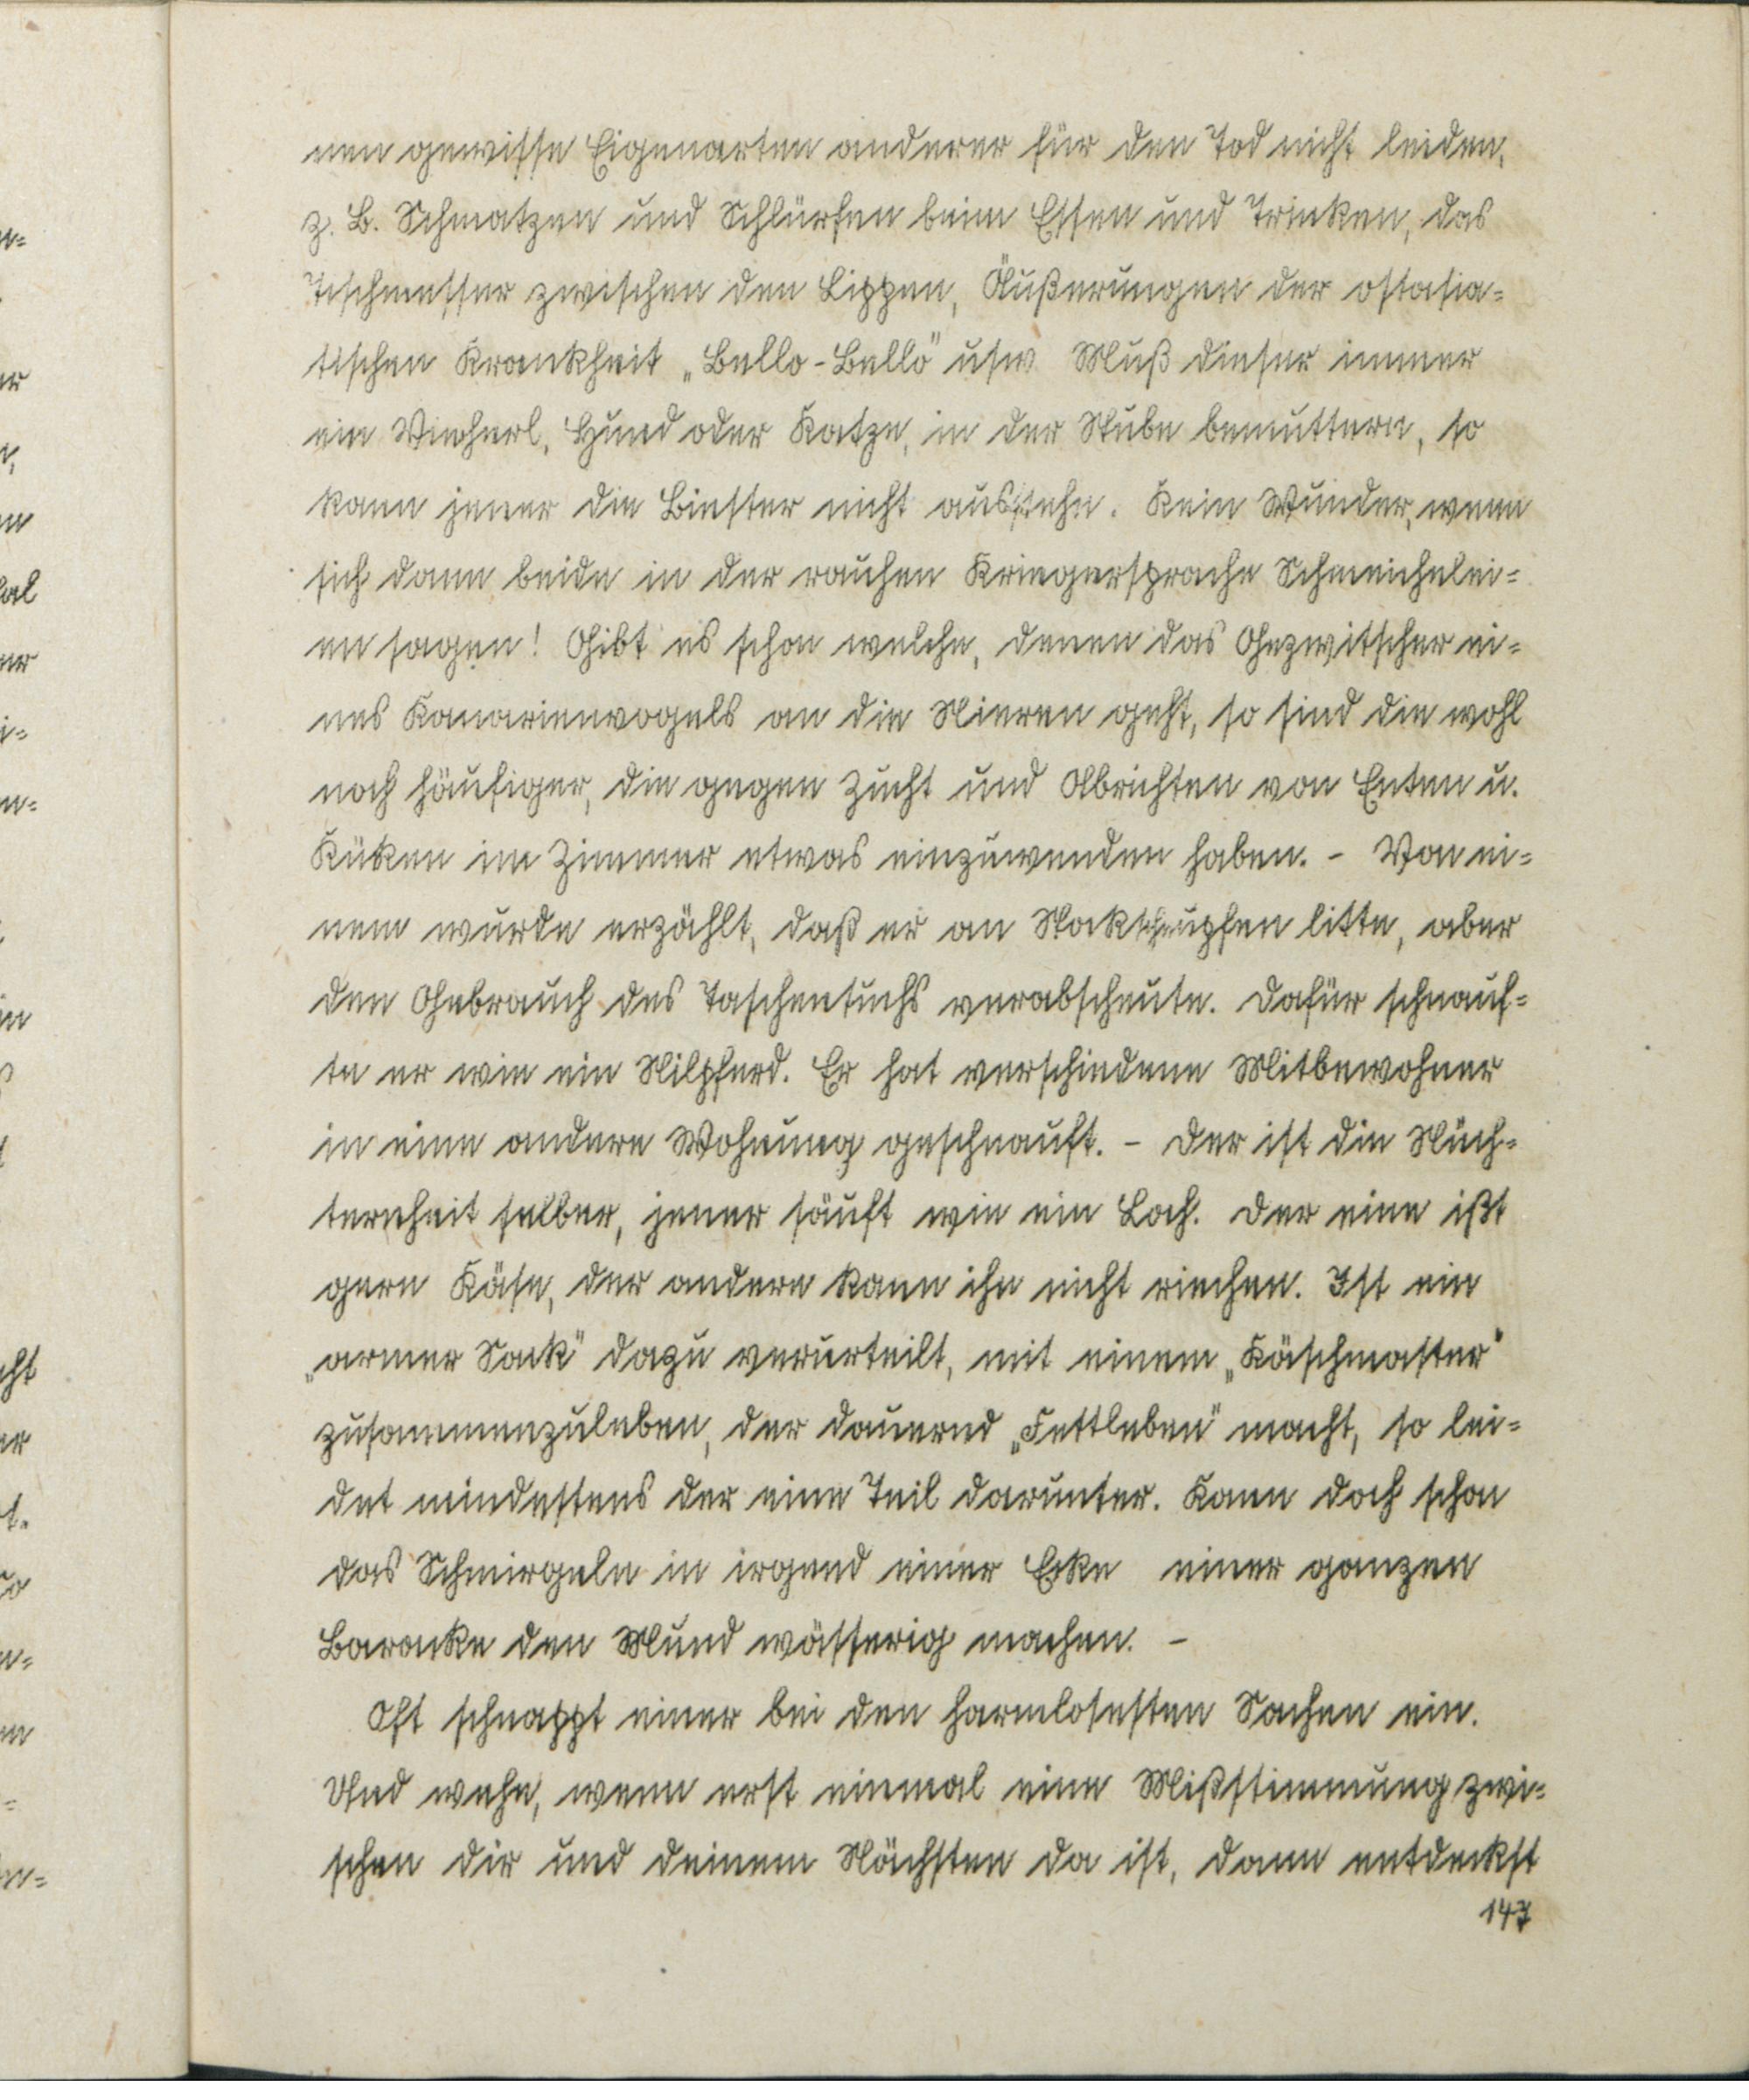 nen gewisse Eigenarten anderer für den Tod nicht leiden,
z. B. Schmatzen und Schlürfen beim Essen und Trinken, das
Tischmesser zwischen den Lippen, Äußerungen der ostasia=
tischen Krankheit „Bello-Bello" usw Muß dieser immer
ein Viecherl, Hund oder Katze, in der Stube bemuttern, so
kann jener die Biester nicht ausstehn. Kein Wunder, wenn
sich dann beide in der rauhen Kriegersprache Schmeichelei=
en sagen! Gibt es schon welche, denen das Gezwitscher ei=
nes Kanarienvogels an die Nieren geht, so sind die wohl
noch häufiger, die gegen Zucht und Abrichten von Enten u.
Küken im Zimmer etwas einzuwenden haben. - Von ei=
nem wurde erzählt, daß er an Stockschnupfen litte, aber
den Gebrauch des Taschentuchs verabscheute. Dafür schnauf=
te er wie ein Nilpferd. Er hat verschiedene Mitbewohner
in eine andere Wohnung geschnauft. - Der ist die Nüch=
ternheit selber, jener säuft wie ein Loch. Der eine ißt
gern Käse, der andere kann ihn nicht riechen. Ist ein
„armer Sack" dazu verurteilt, mit einem „Käschmaster"
zusammenzuleben, der dauernd „Fettleben" macht, so lei=
det mindestens der eine Teil darunter. Kann doch schon
das Schmirgeln in irgend einer Ecke einer ganzen
Baracke den Mund wässerig machen. -
Oft schnappt einer bei den harmlosesten Sachen ein.
Und wehe, wenn erst einmal eine Mißstimmung zwi=
schen dir und deinem Nächsten da ist, dann entdeckst
147